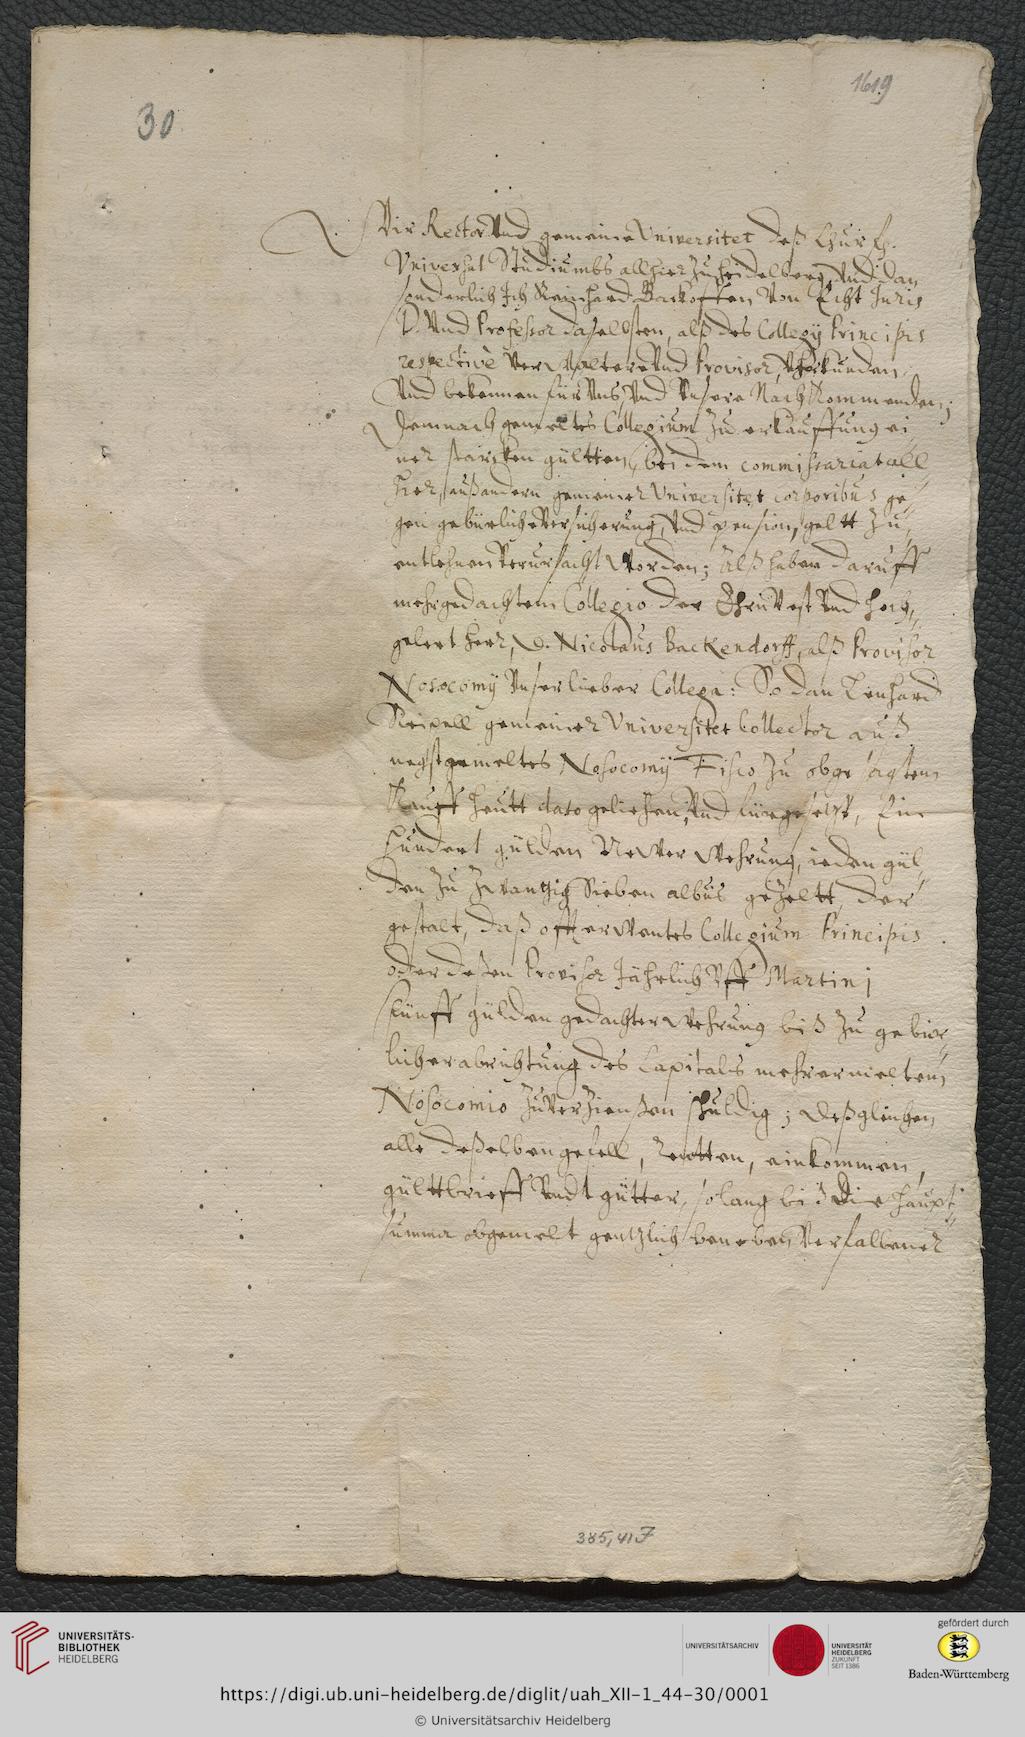 1619
30
Wir Rector Vnd gemeine Vniversitet deß Churf.
Vniversal Studiumbs allhier zu Heidelberg, Vnd dan
sonderlich Ich Reinhard Backoffen Von Echt Juris
D. Vnd Professor daselbsten, alß des Collegij Principis
respectivè Verwaltere Vnd Provisor, Vhrkunden
Vnd bekennen für Vns, Vnd Vnsere Nachkommenden;
Demnach gemeltes Collegium zu erkauffung ei-
ner starcken gültten, bei dem commissariat all
hier, auß andern gemeiner Vniversitet corporibus ge-
gen gebürliche Versicherung, Vnd pension, geltt zu
entlehnen Verursacht worden; Alß haben daruff
mehrgedachtem Collegio der Ehrnvest Vnd hoch-
gelert Herr, D. Nicolaus Backendorff, alß Provisor
Nosocomij Vnser lieber Collega: So dan Lenhard
gemeiner Vniversitet Collector auß
negstgemeltes Nosocomij Fisco zu obgesagtem
Kauff heutt dato geliehen, Vnd fürgesetzt, Ein
hundert gülden Newer wehrung, ieden gül-
den zu zwantzig Sieben albus gezeltt, der
gestalt, daß offterwentes Collegium Principis
oder deßen Provisor Jährlich Vff Martinj
fünff gülden gedachter wehrung biß zu gebür-
licher abrichtung des Capitals mehrermeltem
Nosocomio zu Verzienßen schuldig; deßgleichen
alle deßelben gefell, Rentten, einkommen,
gülttbrieff Vndt gütter, so lang biß die haupt
summa obgemelt gentzlich beneben Verfallener
385,417
UNIVERSITÄTS-
BIBLIOTHEK
HEIDELBERG
UNIVERSITÄTSARCHIV
UNIVERSITÄT
HEIDELBERG
ZUKUNFT
SEIT 1386
gefördert durch
Baden-Württemberg
https://digi.ub.uni-heidelberg.de/diglit/uah_XII-1_44-30/0001
© Universitätsarchiv Heidelberg